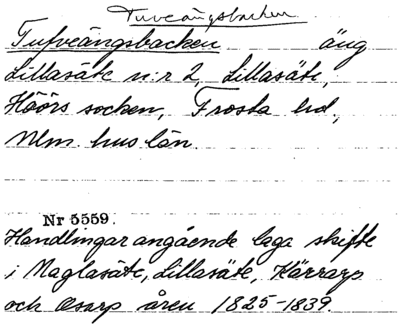 Tuveängsbacken
Tufveängsbacken äng
Lillasäte n:r 2, Lillasäte,
Höörs socken, Frosta hd,
Mlm. hus län.
Nr 5559.
Handlingar angående laga skifte
i Maglasäte, Lillasäte, Kärrarp
och Osarp åren 1825-1839.